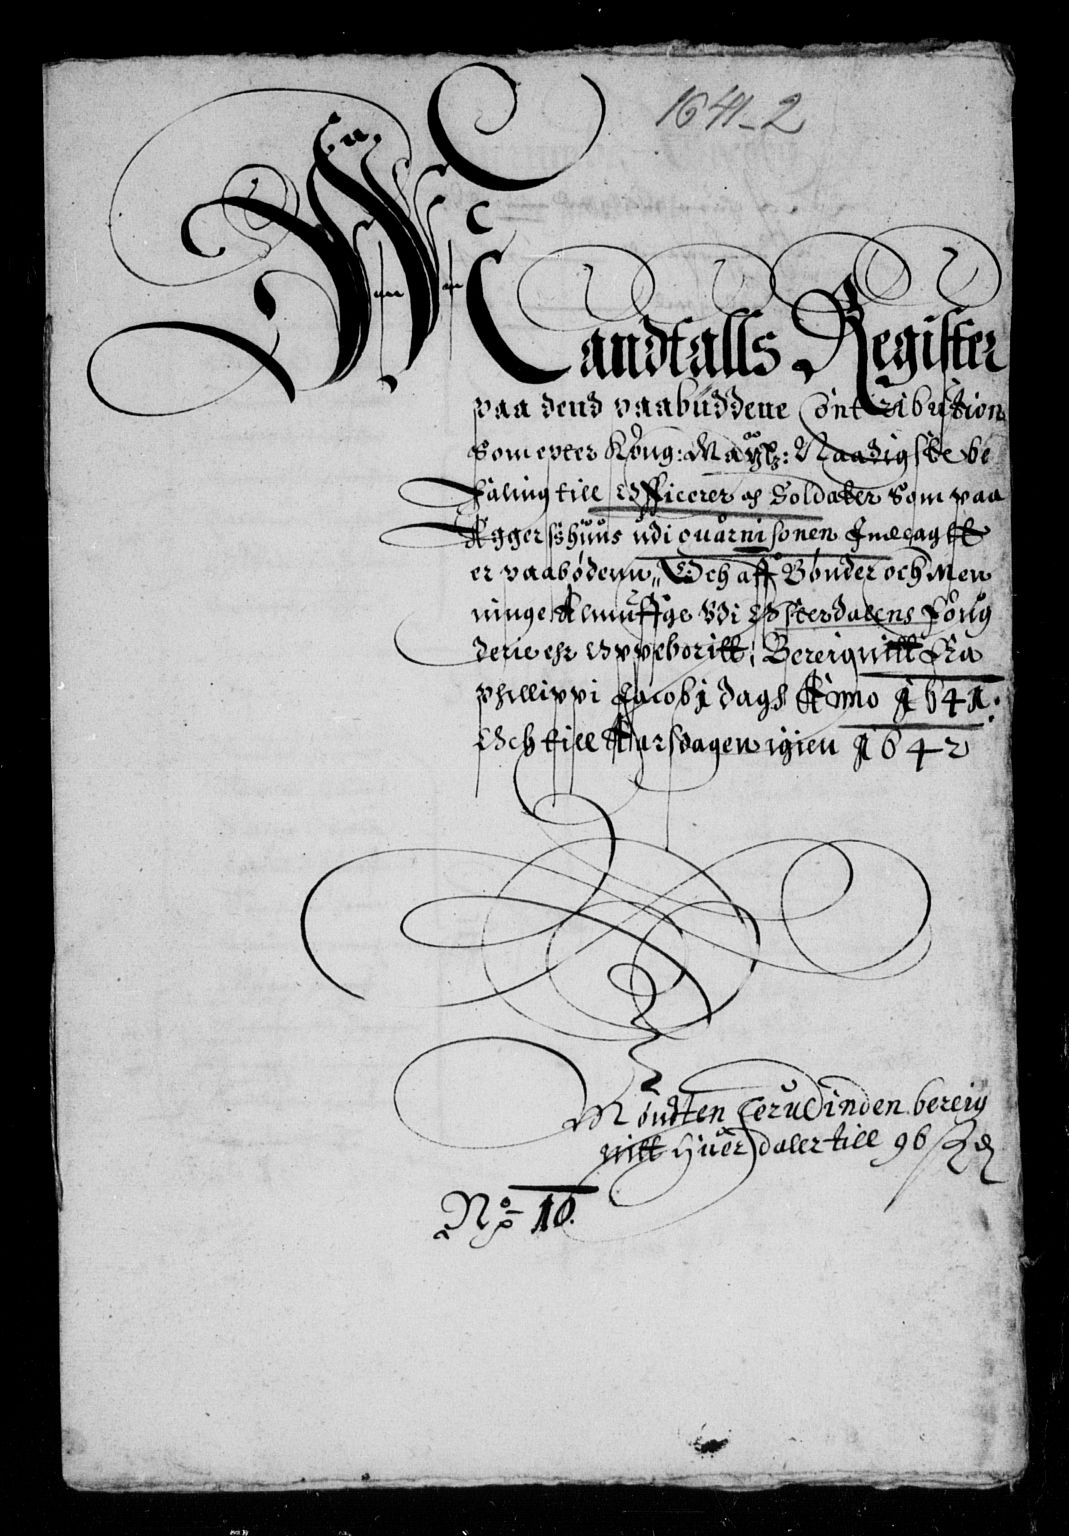 1641-2
Mandtalls Register
paa dend paabüddene Contribution
Som epter Kong: Mayß: Naadigste be
faling till Officerer og Soldater Som paa
Aggerßhuus udi quarnisonen Indlagtt
er paabødenn, Och aff Bønder och Men
ninge Almuffge Vdi Østerdalens fóug
derie ehr Oppeboritt, Bereignitt Fra
Phillippi Jacobi dagh Anno 1641.
Och till Aarsdagen igien 1642
Möndten herudinden bereig
nitt Huer daler till 96 ß
No: 10.